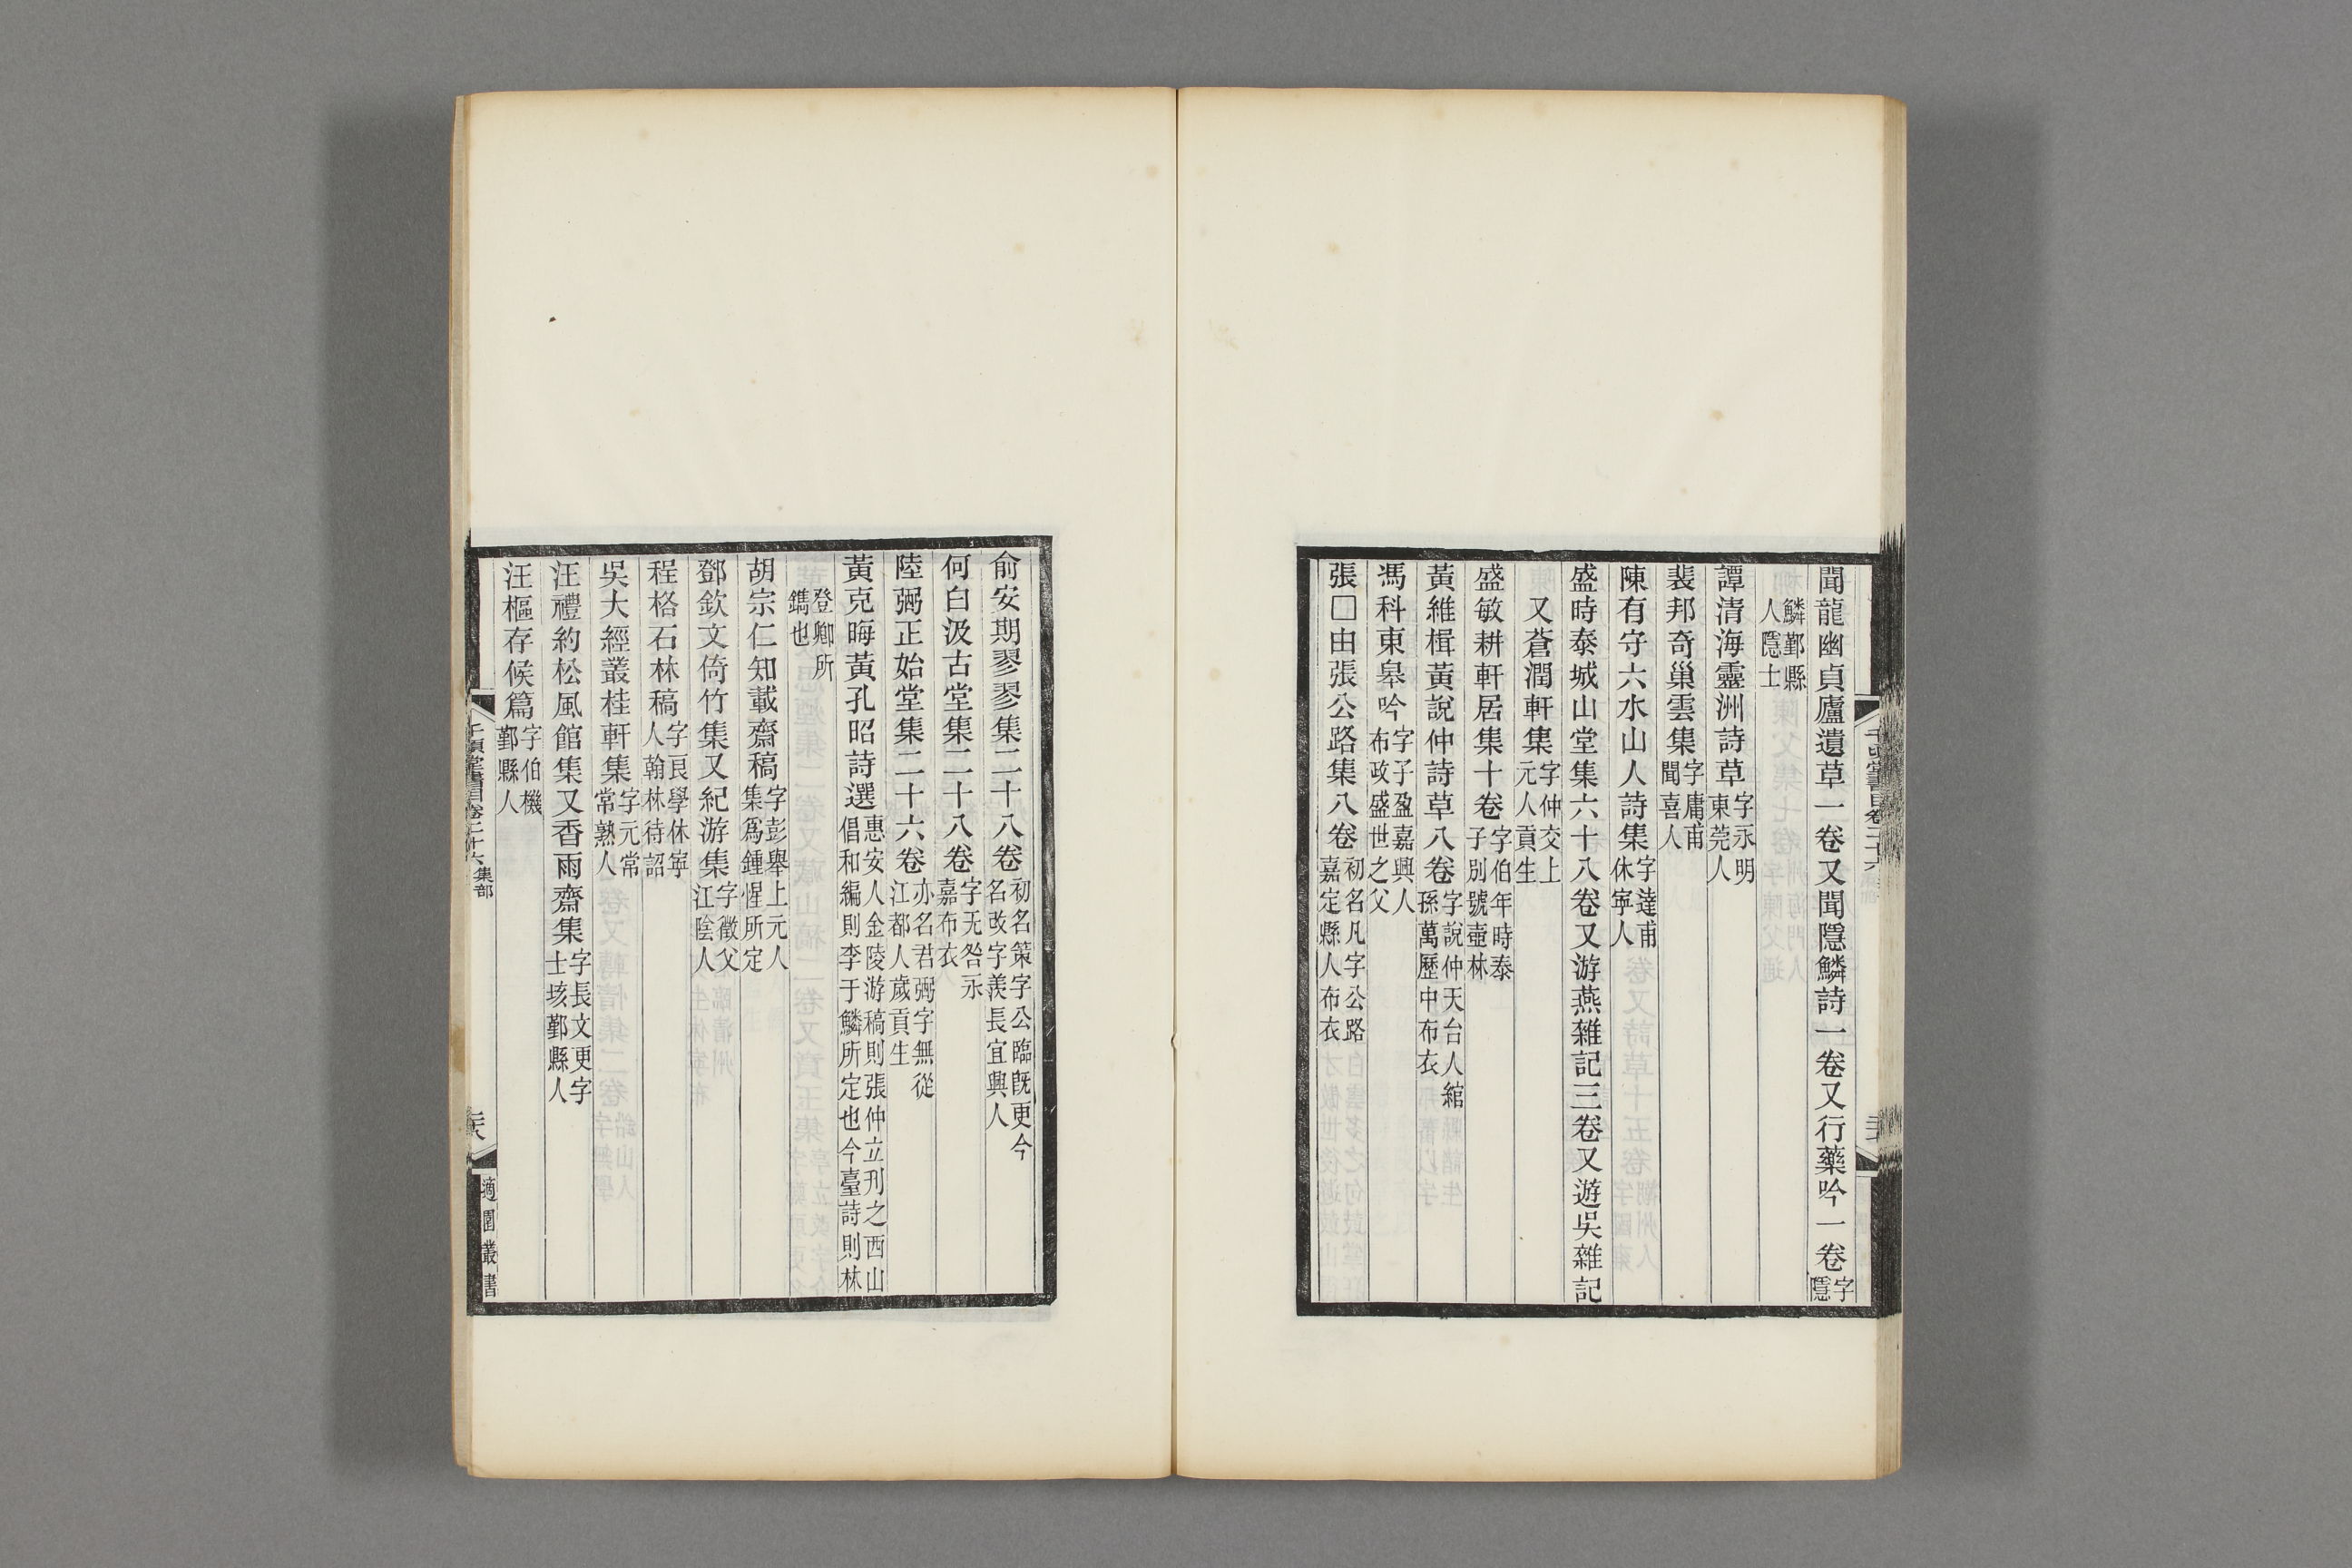 聞龍幽貞廬遺草一卷又聞隱鱗詩一卷又行藥吟一卷字隱
鱗鄞縣人隱士
譚清海靈洲詩草字永明東莞人
裴邦奇巢雲集字庸甫聞喜人
陳有守六水山人詩集字達甫休寧人
盛時泰城山堂集六十八卷又游燕雜記三卷又遊吳雜記
又蒼潤軒集字仲交上元人貢生
盛敏耕軒居集十卷字伯年時泰子別號壺林
黃維楫黃說仲詩草八卷字說仲天台人綰孫萬歷中布衣
馮科東皋吟字子盈嘉興人布政盛世之父
張□由張公路集八卷初名凡字公路嘉定縣人布衣
俞安期翏翏集二十八卷初名策字公臨旣更今名改字羨長宜興人
何白汲古堂集二十八卷字无咎永嘉布衣
陸弼正始堂集二十六卷亦名君弼字無從江都人歲貢生
黃克晦黃孔昭詩選惠安人金陵游稿則張仲立刋之西山倡和編則李于鱗所定也今臺詩則林
登卿所鐫也
胡宗仁知載齋稿字彭舉上元人集爲鍾惺所定
鄧欽文倚竹集又紀游集字徵父江陰人
程格石林稿字艮學休寧人翰林待詔
吳大經叢桂軒集字元常常熟人
汪禮約松風館集又香雨齋集字長文更字士垓鄞縣人
汪樞存候篇字伯機鄞縣人
千頃堂書目卷二十六 集部
適園叢書